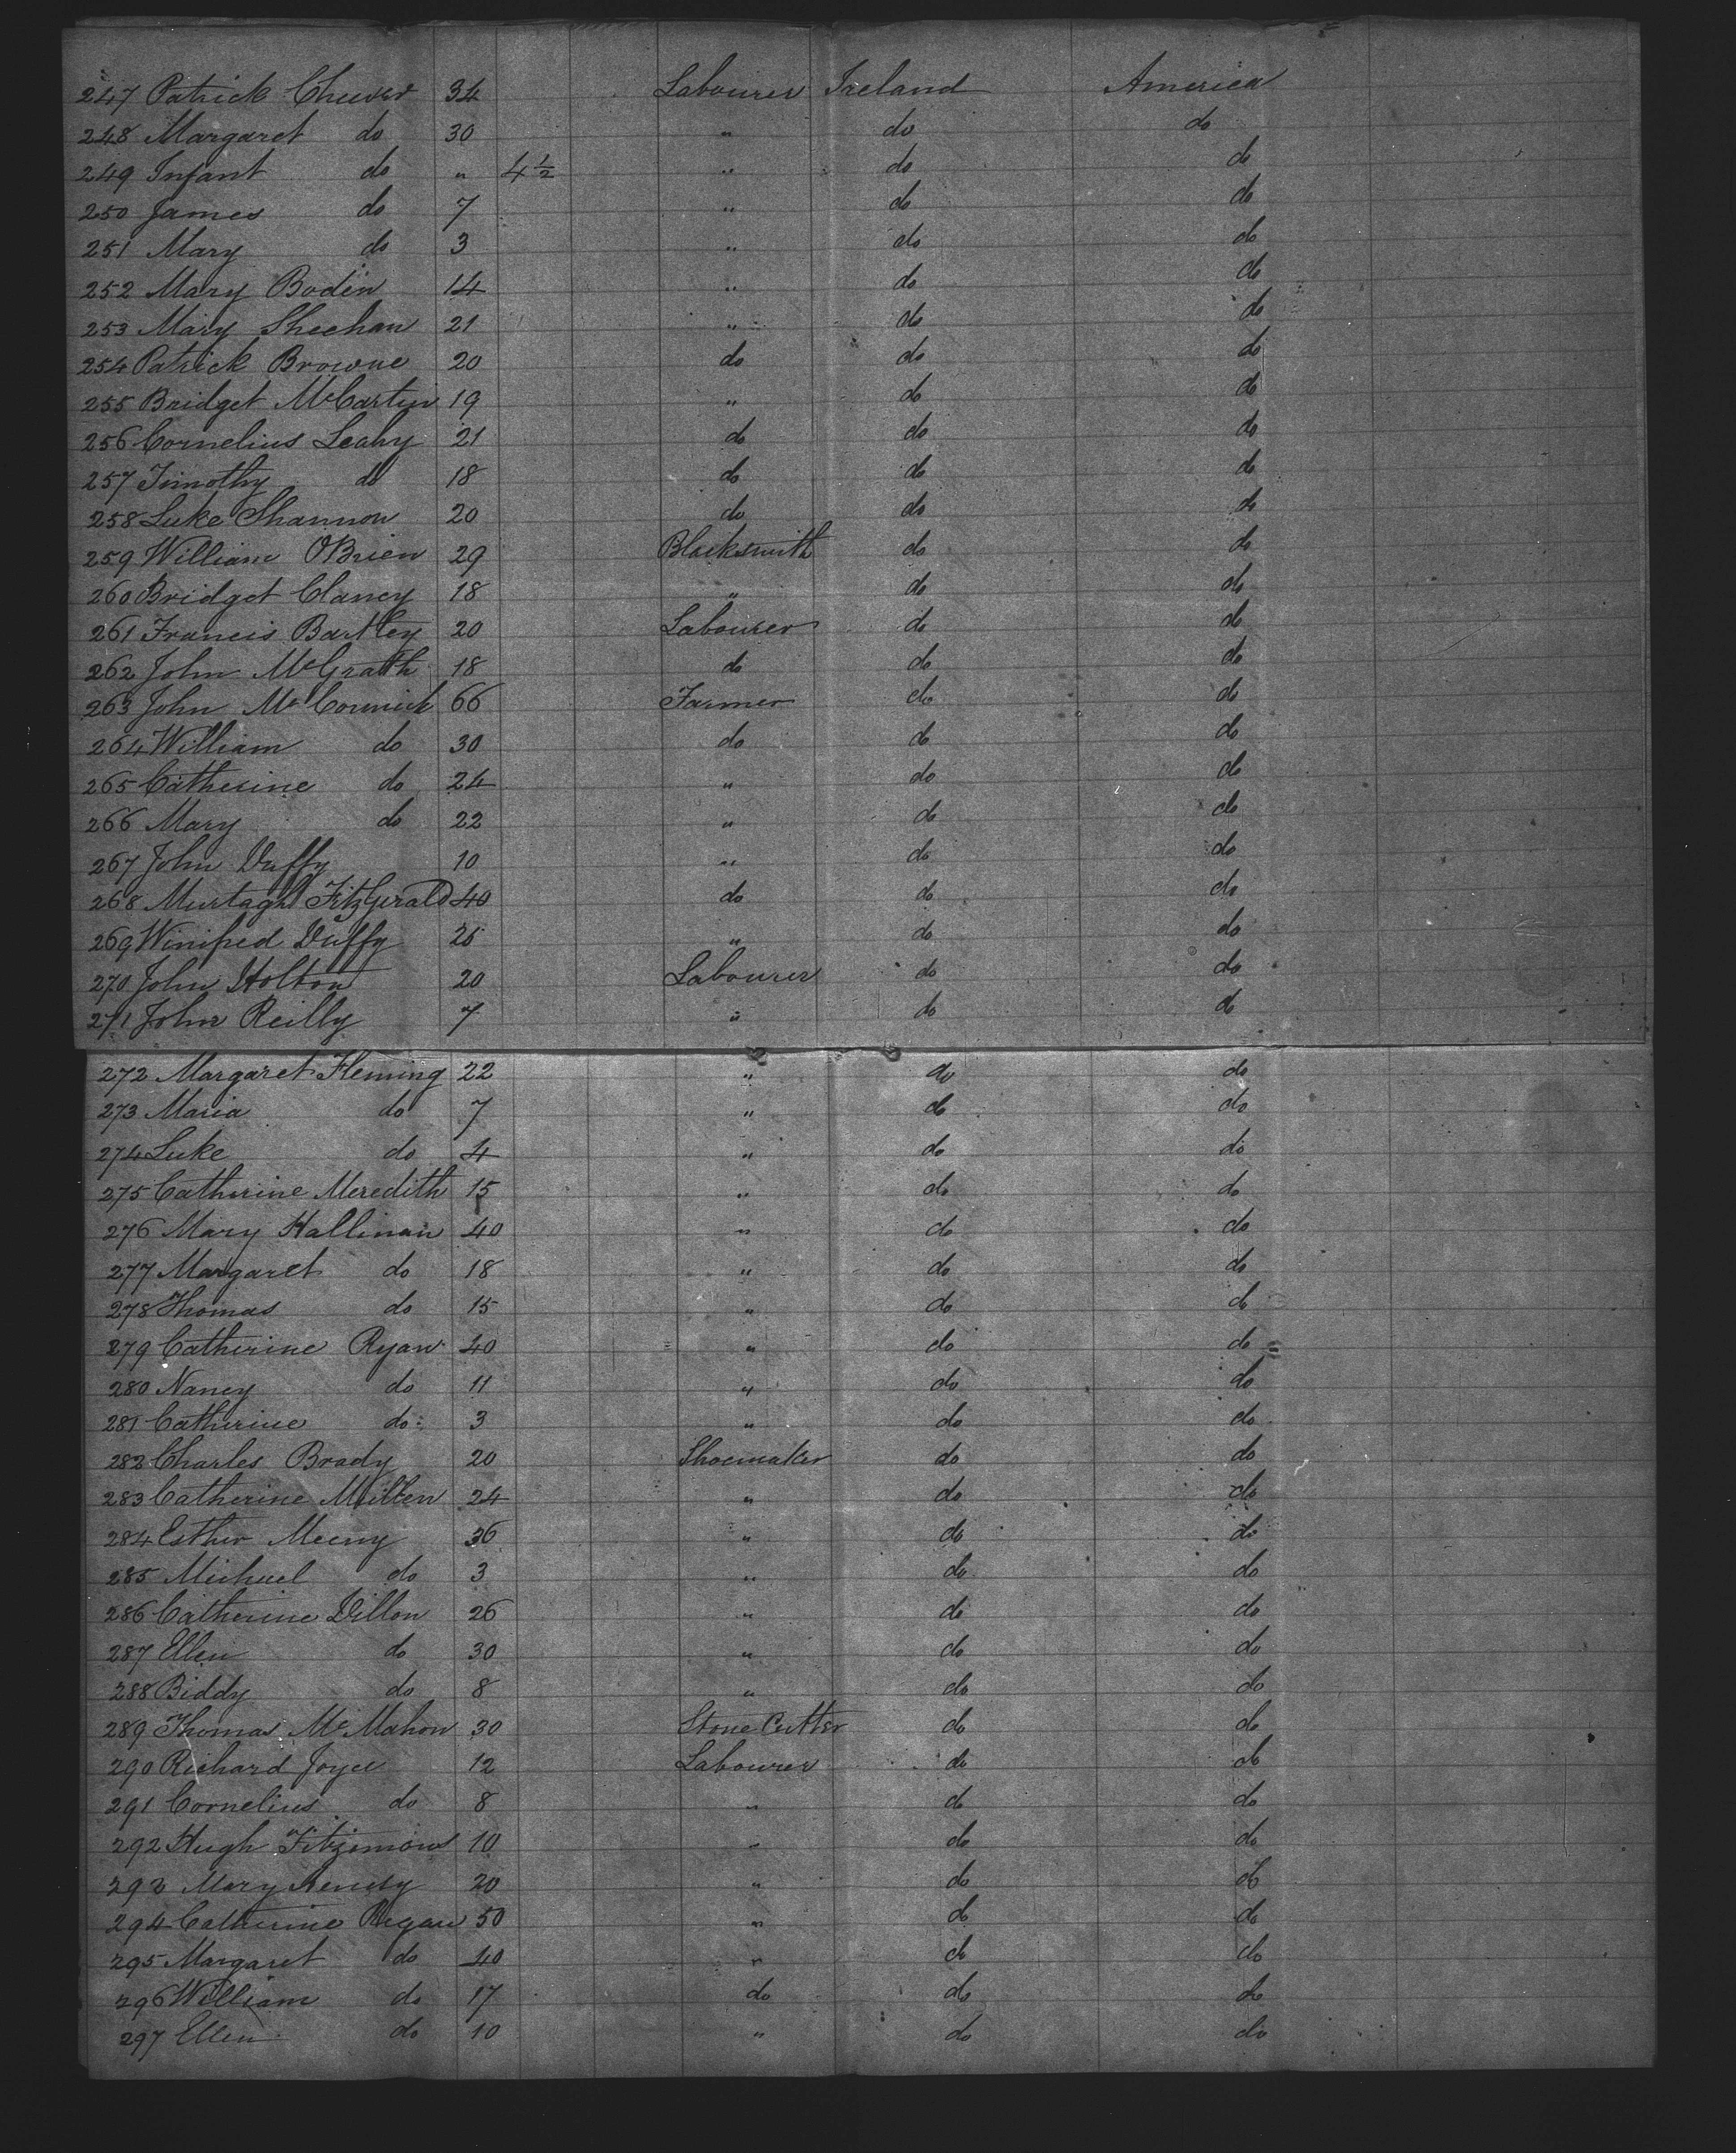 247 Patrick Cheever 34 Labourer Ireland America
248 Margaret do 30 " do do
249 Infant do " 4½ " do do
250 James do 7 " do do
251 Mary do 3 " do do
252 Mary Boden 14 " do do
253 Mary Sheehan 21 " do do
254 Patrick Browne 20 do do do
255 Bridget McCartin 19 " do do
256 Cornelius Leahy 21 do do do
257 Timothy do 18 do do do
258 Luke Shannon 20 do do do
259 William O'Brien 29 Blacksmith do do
260 Bridget Clancy 18 " do do
261 Francis Bartley 20 Labourer do do
262 John McGrath 18 do do do
263 John McCormick 66 Farmer do do
264 William do 30 do do do
265 Catherine do 24 " do do
266 Mary do 22 " do do
267 John Duffy 10 " do do
268 Murtagh FitzGerald 40 do do do
269 Winifred Duffy 25 " do do
270 John Holton 20 Labourer do do
271 John Reilly 7 " do do
272 Margaret Fleming 22 " do do
273 Maria do 7 " do do
274 Luke do 4 " do do
275 Catherine Meredith 15 " do do
276 Mary Hallinan 40 " do do
277 Margaret do 18 " do do
278 Thomas do 15 " do do
279 Catherine Ryan 40 " do do
280 Nancy do 11 " do do
281 Catherine do 3 " do do
282 Charles Brady 20 Shoemaker do do
283 Catherine Millen 24 " do do
284 Esther Meeny 36 " do do
285 Michael do 3 " do do
286 Catherine Dillon 26 " do do
287 Ellen do 30 " do do
288 Biddy do 8 " do do
289 Thomas McMahon 30 Stone Cutter do do
290 Richard Joyce 12 Labourer do do
291 Cornelius do 8 " do do
292 Hugh Fitzsimons 10 " do do
293 Mary 20 " do do
294 Catherine Regan 50 " do do
295 Margaret do 40 " do do
296 William do 17 do do do
297 Ellen do 10 " do do